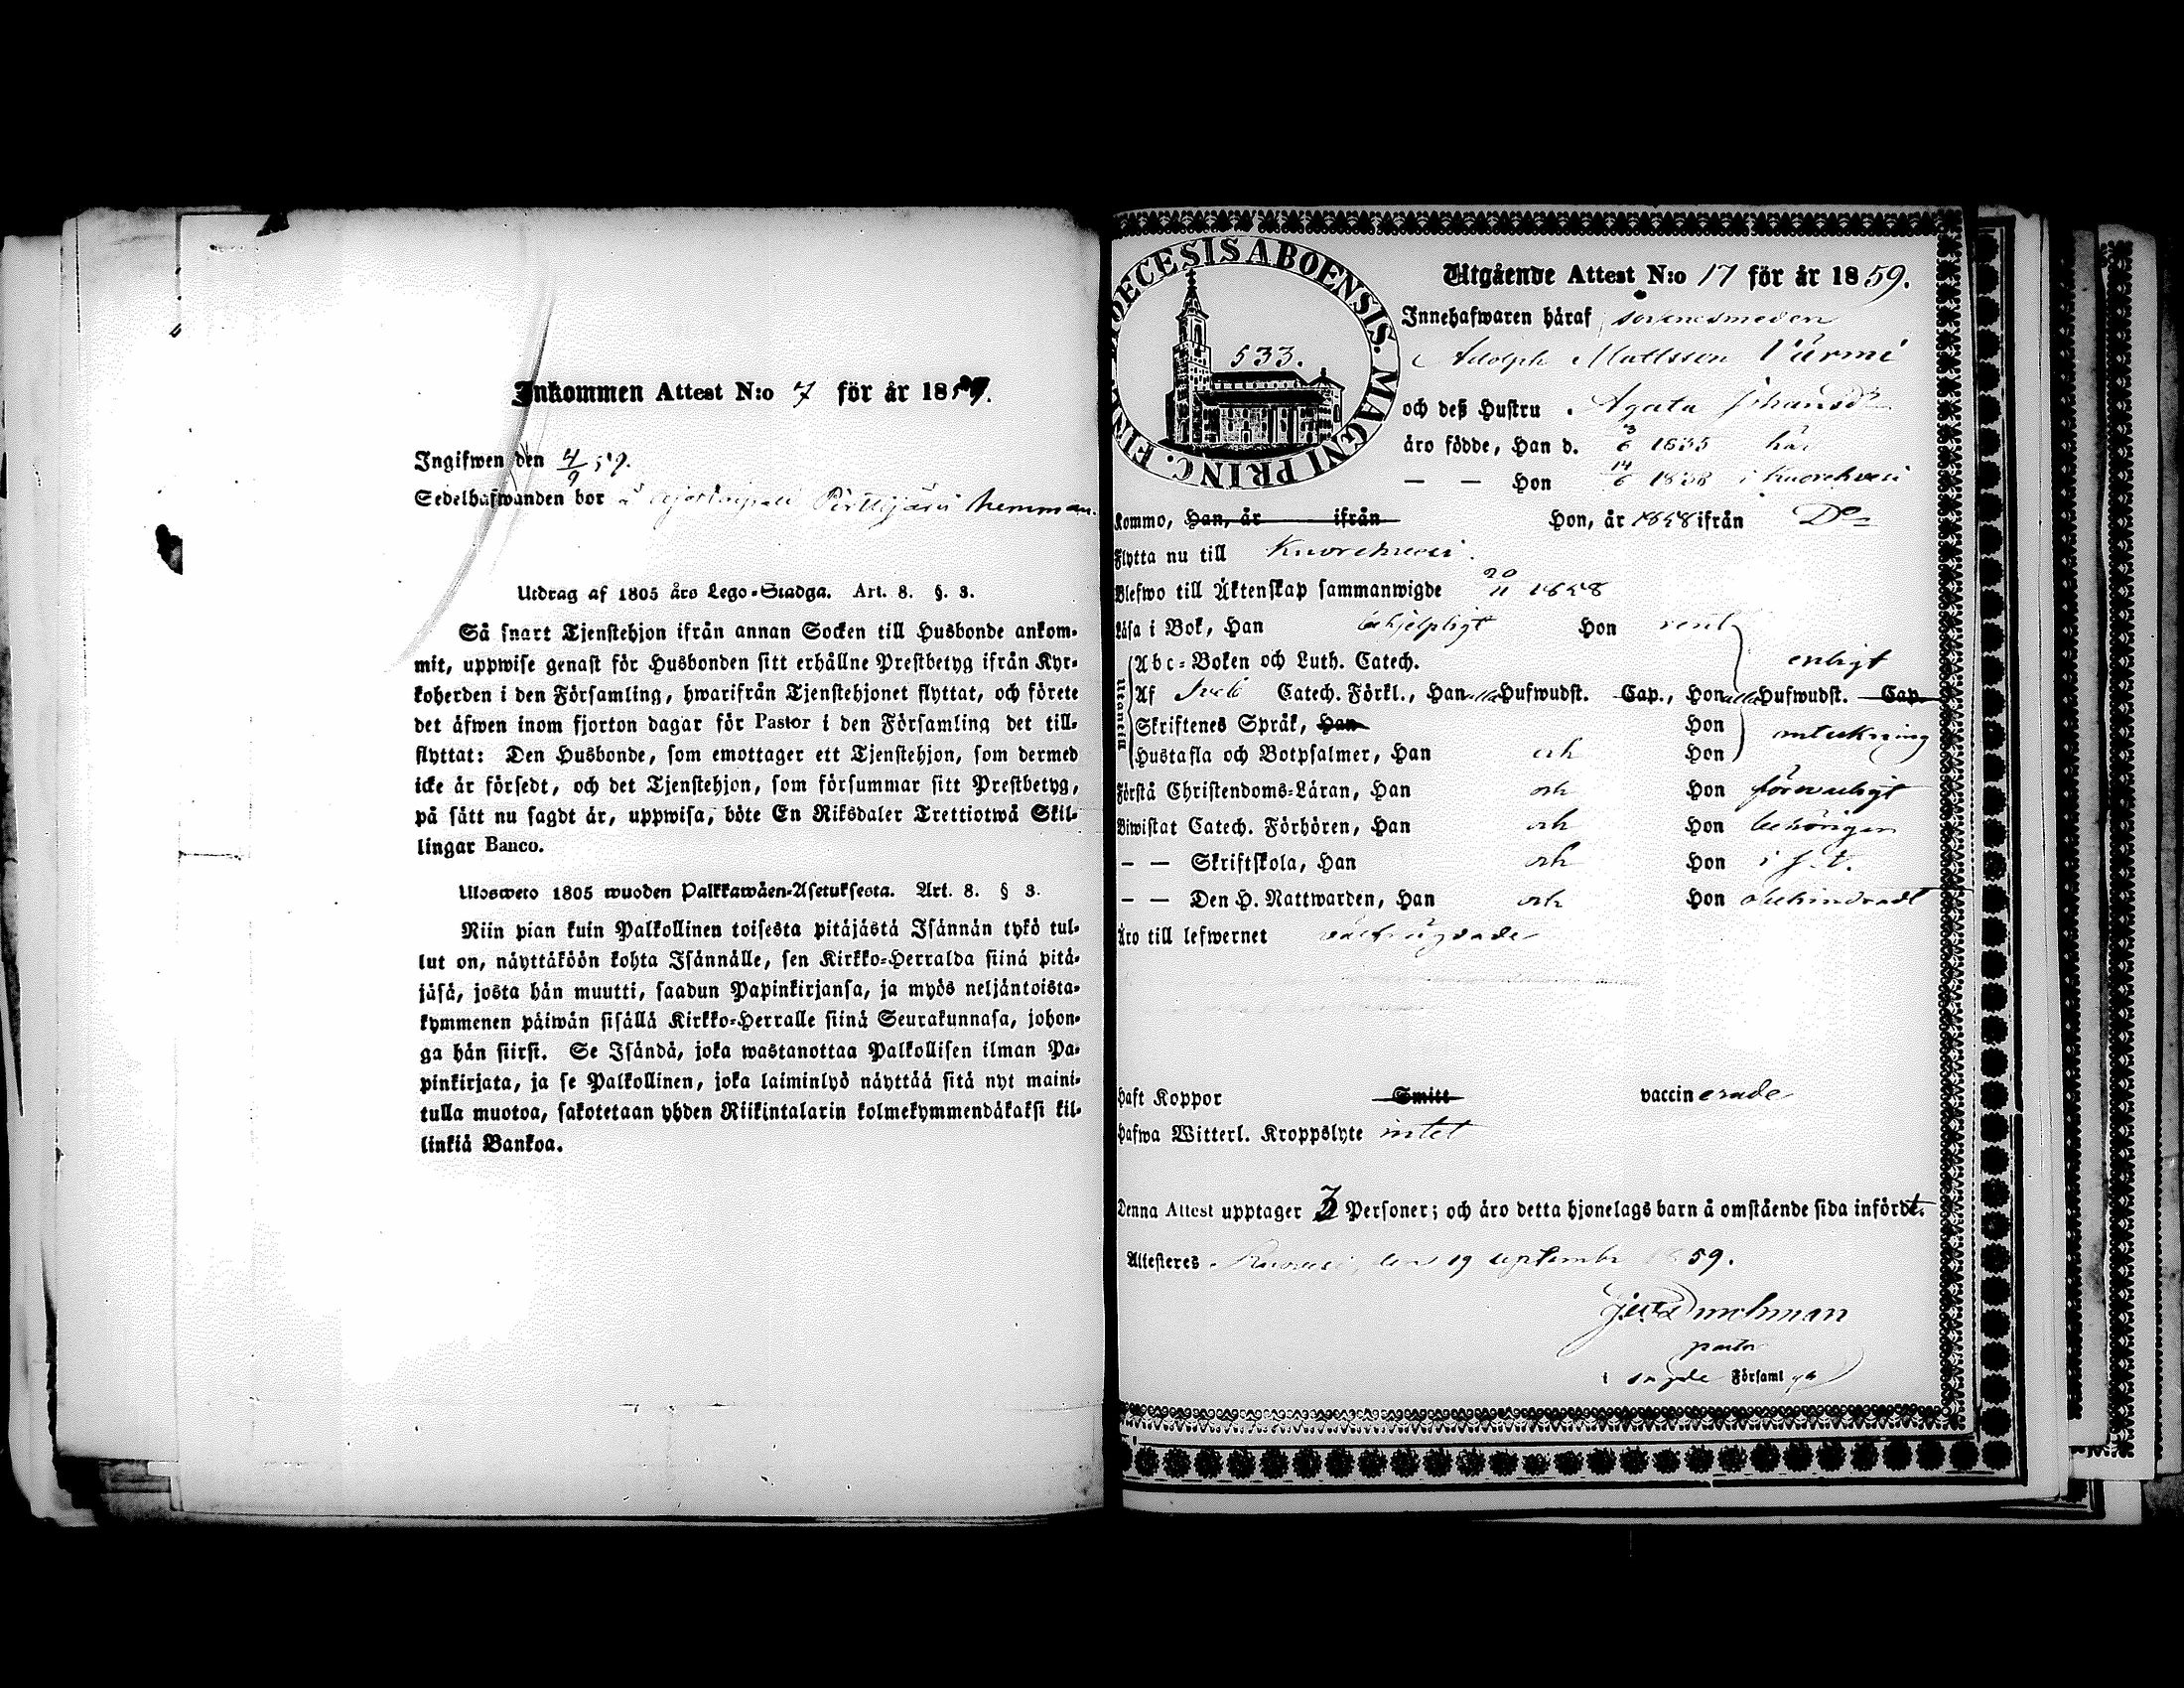 Inkommen Attest N:o 7 för år 1859.
Ingifwen den 4/9 59.
Sedelhafwanden bor å Pirttijärvi hemman.
Utdrag af 1805 års Lego-Stadga. Art. 8. §. 3.
Så snart Tjenstehjon ifrån annan Socken till Husbonde ankom-
mit, uppwise genast för Husbonden sitt erhållne Prestbetyg ifrån Kyr-
koherden i den Församling, hwarifrån Tjenstehjonet flyttat, och förete
det äfwen inom fjorton dagar för Pastor i den Församling det till-
flyttat: Den Husbonde, som emottager ett Tjenstehjon, som dermed
icke är försedt, och det Tjenstehjon, som försummar sitt Prestbetyg,
på sätt nu sagdt är, uppwisa, böte En Riksdaler Trettiotwå Skil-
lingar Banco.
Ulosweto 1805 wuoden Palkkawäen-Asetuksesta. Art. 8. § 3.
Niin pian kuin Palkollinen toisesta pitäjästä Isännän tykö tul-
lut on, näyttäköön kohta Isännälle, sen Kirkko-Herralda siinä pitä-
jäsä, josta hän muutti, saadun Papinkirjansa, ja myös neljäntoista-
kymmenen päiwän sisällä Kirkko-Herralle siinä Seurakunnasa, johon-
ga hän siirsi. Se Isändä, joka wastanottaa Palkollisen ilman Pa-
pinkirjata, ja se Palkollinen, joka laiminlyö näyttää sitä nyt maini-
tulla muotoa, sakotetaan yhden Riikintalarin kolmekymmendäkaksi kil-
linkiä Bankoa.
DIOECESIS ABOENSIS. MAGNI PRINC. FINL
533.
Utgående Attest N:o 17 för år 1859.
Innehafwaren häraf sockensmeden
Adolph Mattsson Särmi
och deß Hustru Agata Johansdr
äro födde, Han d. 3/6 1835 här
— — Hon 14/6 1838 i Kuorehvesi
Kommo, Han, år ifrån Hon, år 1858 ifrån Do
Flytta nu till Kuorehvesi.
Blefwo till Äktenskap sammanwigde 20/11 1858
Läsa i Bok, Han behjelpligt Hon rent
Abc-Boken och Luth. Catech. enligt
Utantill
Af Sveb. Catech. Förkl., Han alla Hufwudst. Cap., Hon alla Hufwudst. Cap.
Skriftenes Språk, Han Hon
anteckning
Hustafla och Botpsalmer, Han och Hon
Förstå Christendoms-Läran, Han och Hon försvarligt
Biwistat Catech. Förhören, Han och Hon behörigen
— — Skriftskola, Han och Hon
— — Den H. Nattwarden, Han och Hon obehindradt
Äro till lefwernet välfrägdade
Haft Koppor Smitt vaccinerade
Hafwa Witterl. Kroppslyte intet
Denna Attest upptager 3 Personer; och äro detta hjonelags barn å omstående sida infördt.
Attesteres Ruovesi, den 19 september 1859.
pastor
i sagde Församl